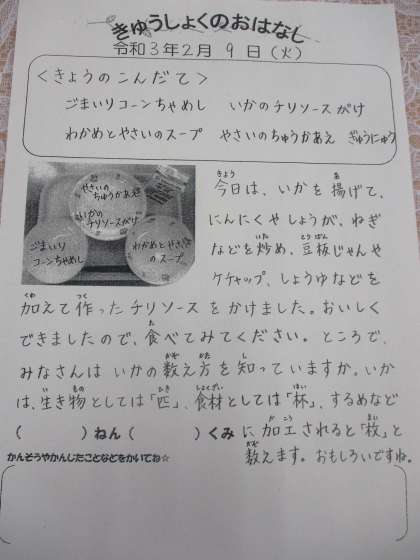 きゅうしょくのおはなし
令和3年2月 9日(火)
<きょうのこんだて>
ごまいりコーンちゃめし いかのチリソースがけ
わかめとやさいのスープ やさいのちゅうかあえ ぎゅうにゅう
やさいの
ちゅうかあえ
いかの
チリソースがけ
ごまいり
コーンちゃめし
わかめとやさい
のスープ
今日は、いかを揚げて、
にんにくやしょうが、ねぎ
などを炒め、豆板じゃんや
ケチャップ、しょうゆなどを
加えて作ったチリソースをかけました。おいしく
できましたので、食べてみてください。ところで、
みなさんはいかの数え方を知っていますか。いか
は、生き物としては「匹」、食材としては「杯」、するめなど
に加工されると「枚」と
数えます。おもしろいですね。
( )ねん( )くみ
かんそうやかんじたことなどをかいてね☆